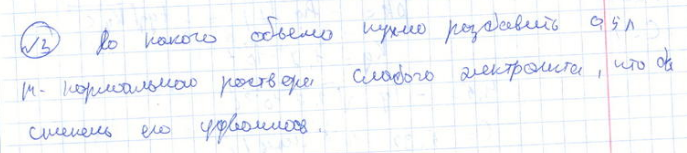 √3 До какого объема нужно разбавить 0,5 л
м-нормального раствора слабого электролита, что бы
степень его удвоилось.